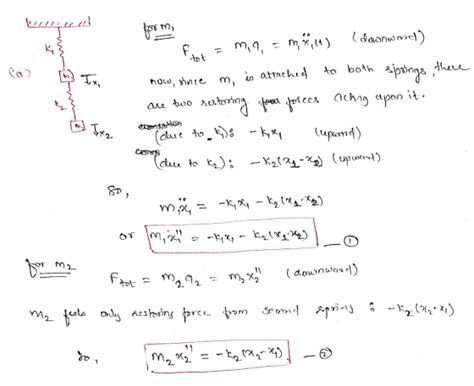 for m₁
F_tot = m₁a₁ = m₁ẍ₁(t) (downward)
K₁
(a)
m₁
↓x₁
now, since m₁ is attached to both springs, there
are two restoring forces acting upon it.
K₂
m₂
↓x₂
(due to k₁): -k₁x₁ (upward)
(due to k₂): -k₂(x₁-x₂) (upward)
So,
m₁ẍ₁ = -k₁x₁ - k₂(x₁-x₂)
or m₁x₁'' = -k₁x₁ - k₂(x₁-x₂) —①
for m₂
F_tot = m₂a₂ = m₂x₂'' (downward)
m₂ feels only restoring force from second spring : -k₂(x₂-x₁)
So, m₂x₂'' = -k₂(x₂-x₁) —②